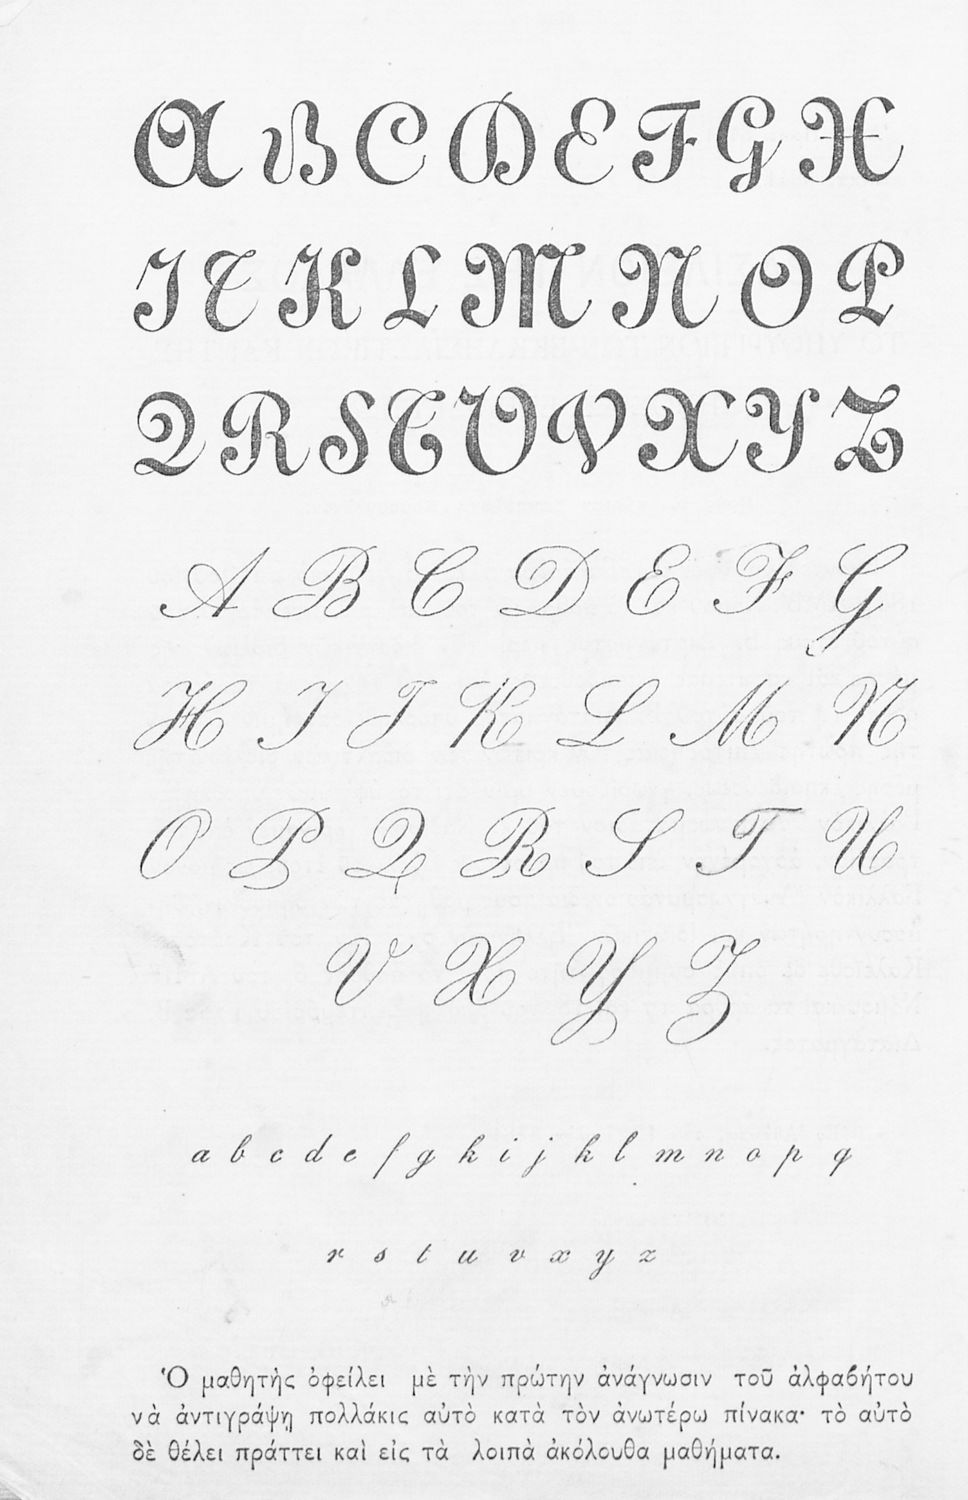 A B C D E F G H
I J K L M N O P
Q R S T U V X Y Z
A B C D E F G
H I J K L M N
O P Q R S T U
V X Y Z
a b c d e f g h i j k l m n o p q
r s t u v x y z
Ὁ μαθητὴς ὀφείλει μὲ τὴν πρώτην ἀνάγνωσιν τοῦ ἀλφαβήτου
νὰ ἀντιγράψῃ πολλάκις αὐτὸ κατὰ τὸν ἀνωτέρω πίνακα· τὸ αὐτὸ
δὲ θέλει πράττει καὶ εἰς τὰ λοιπὰ ἀκόλουθα μαθήματα.